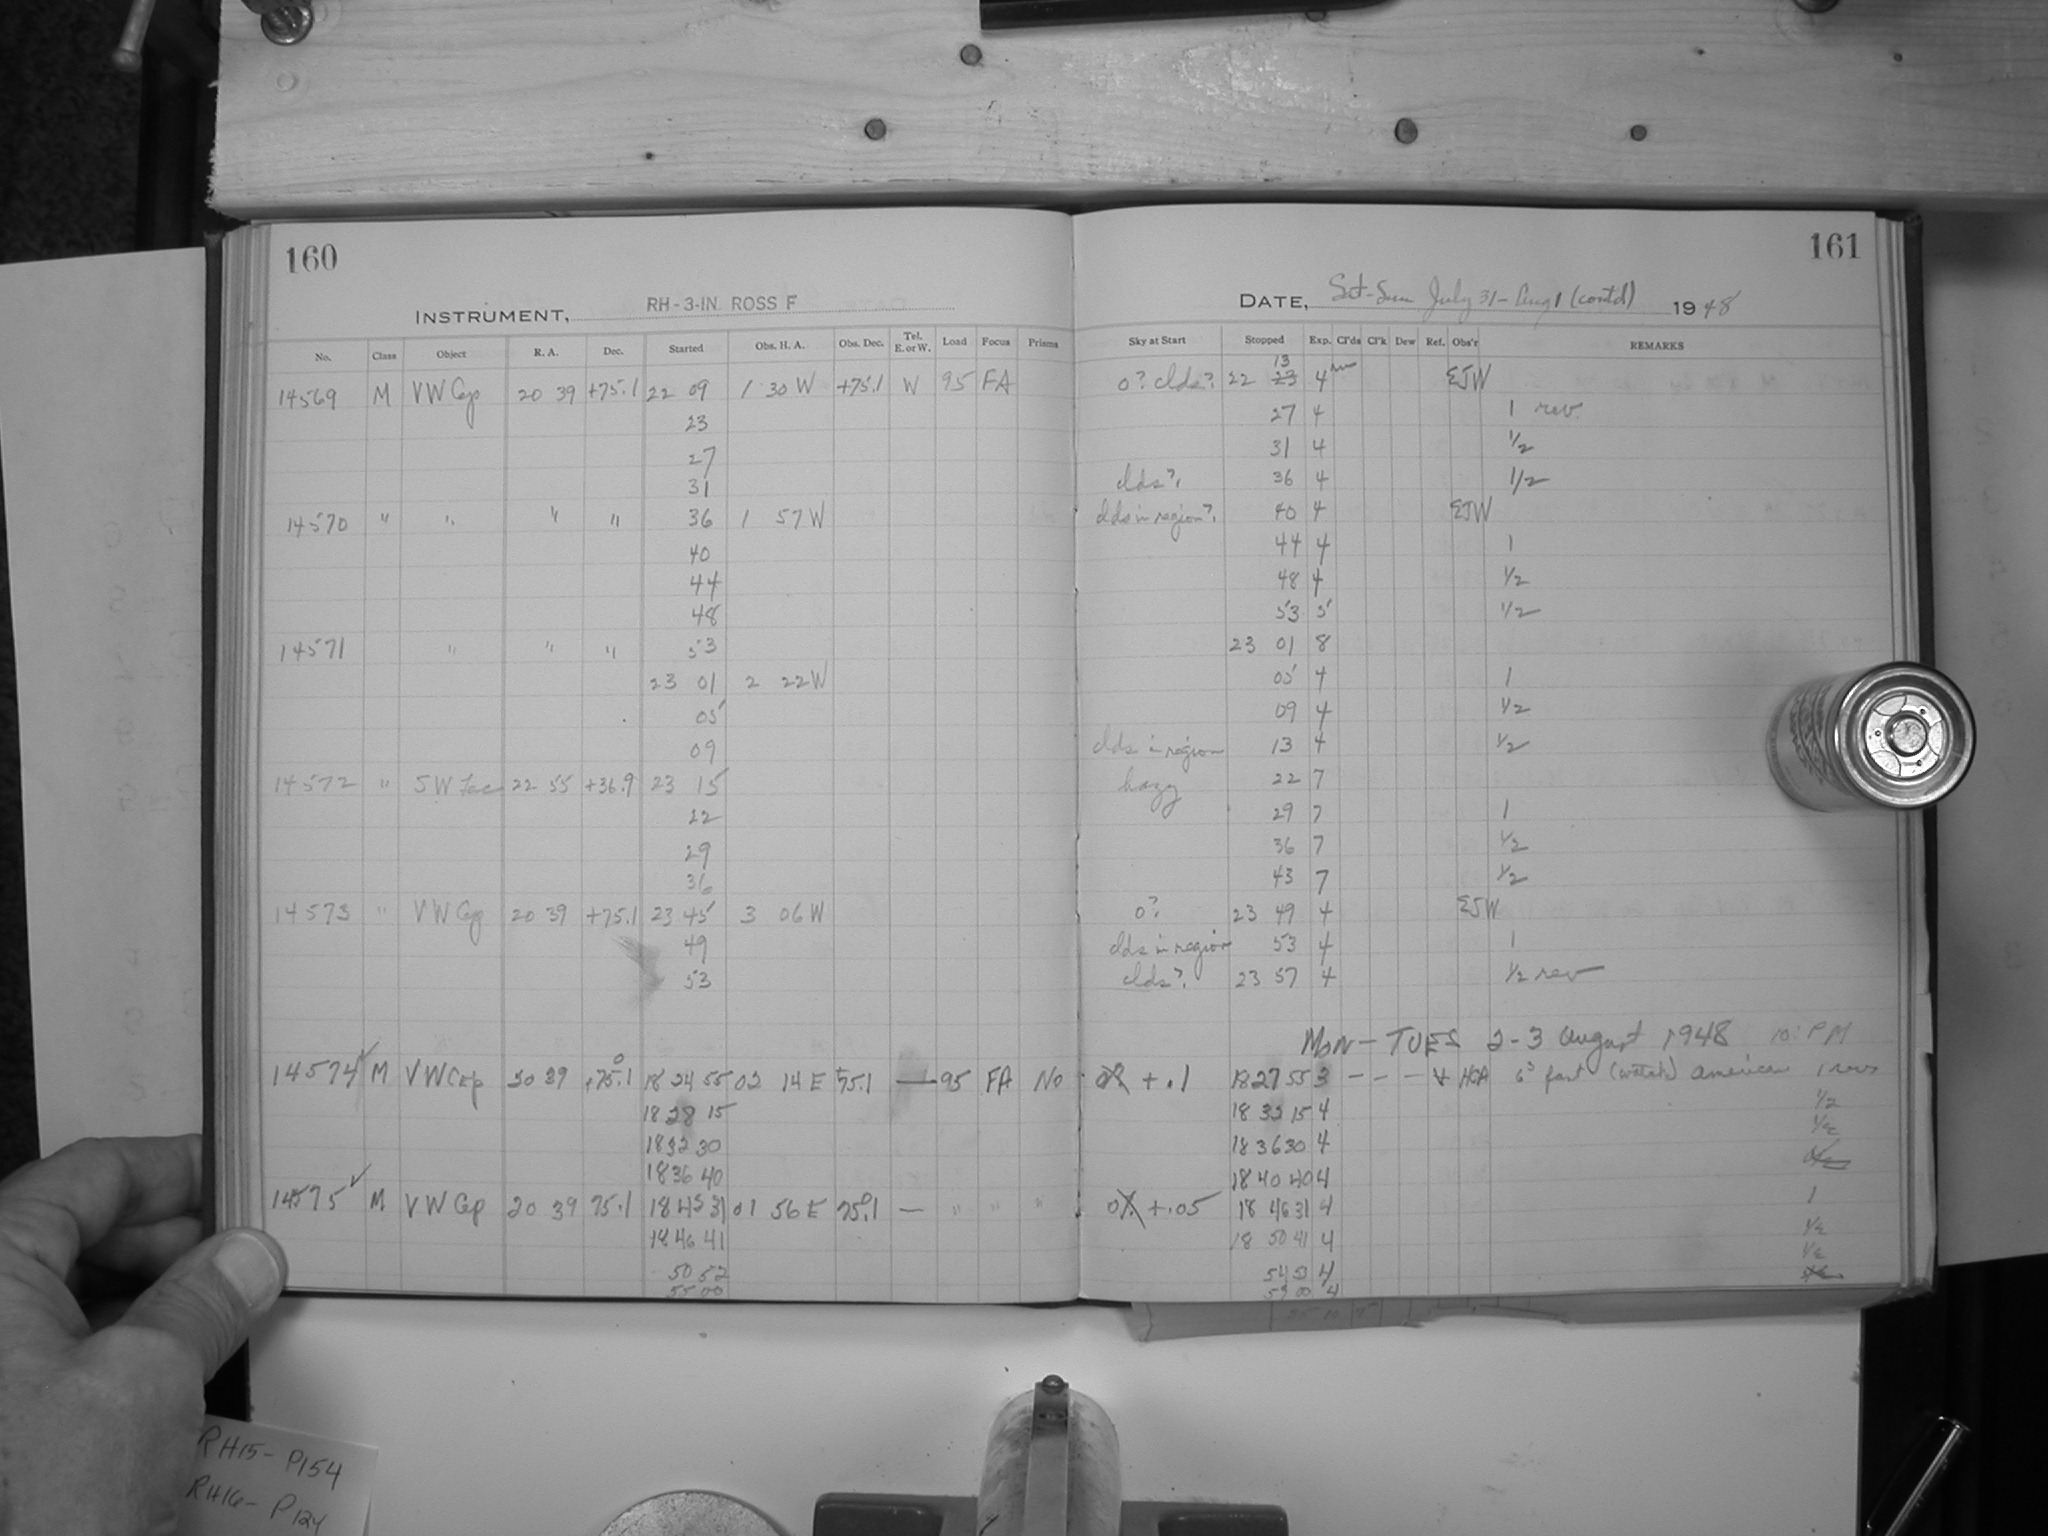 160
INSTRUMENT, RH-3-IN. ROSS F
No. Class Object R. A. Dec. Started Obs. H. A. Obs. Dec. Tel. E. or W. Load Focus Prisms
14569 M VW Cep 20 39 +75.1 22 09 1 30 W +75.1 W 95 FA
23
27
31
14570 " " " " 36 1 57 W
40
44
48
14571 " " " 53
23 01 2 22 W
05
09
14572 " SW Lac 22 55 +36.9 23 15
22
29
36
14573 " VW Cep 20 39 +75.1 23 45 3 06 W
49
53
14574 ✓ M VW Cep 20 39 +75.1 18 24 55 02 14 E 75.1 — 95 FA No
18 28 15
18 32 30
18 36 40
14575 ✓ M VW Cep 20 39 75.1 18 42 31 01 56 E 75.1 — " " "
18 46 41
50 52
55 00
161
DATE, Sat-Sun July 31-Aug 1 (contd) 1948
Sky at Start Stopped Exp. Cl'ds Cl'k Dew Ref. Obs'r REMARKS
13
0? clds? 22 23 4 EJW
27 4 1 rev.
31 4 1/2
clds? 36 4 1/2
clds in region? 40 4 EJW
44 4 1
48 4 1/2
53 5 1/2
23 01 8
05 4 1
09 4 1/2
clds in region 13 4 1/2
hazy 22 7
29 7 1
36 7 1/2
43 7 1/2
0? 23 49 4 EJW
clds in region 53 4 1
clds? 23 57 4 1/2 rev
MON-TUES 2-3 August 1948 10: PM
+.1 18 27 55 3 - - - fast (watch) american 1 rev
18 32 15 4 1/2
18 36 30 4 1/2
18 40 40 4
+.05 18 46 31 4 1
18 50 41 4 1/2
54 53 4 1/2
59 00 4
RH15- P154
RH16- P124